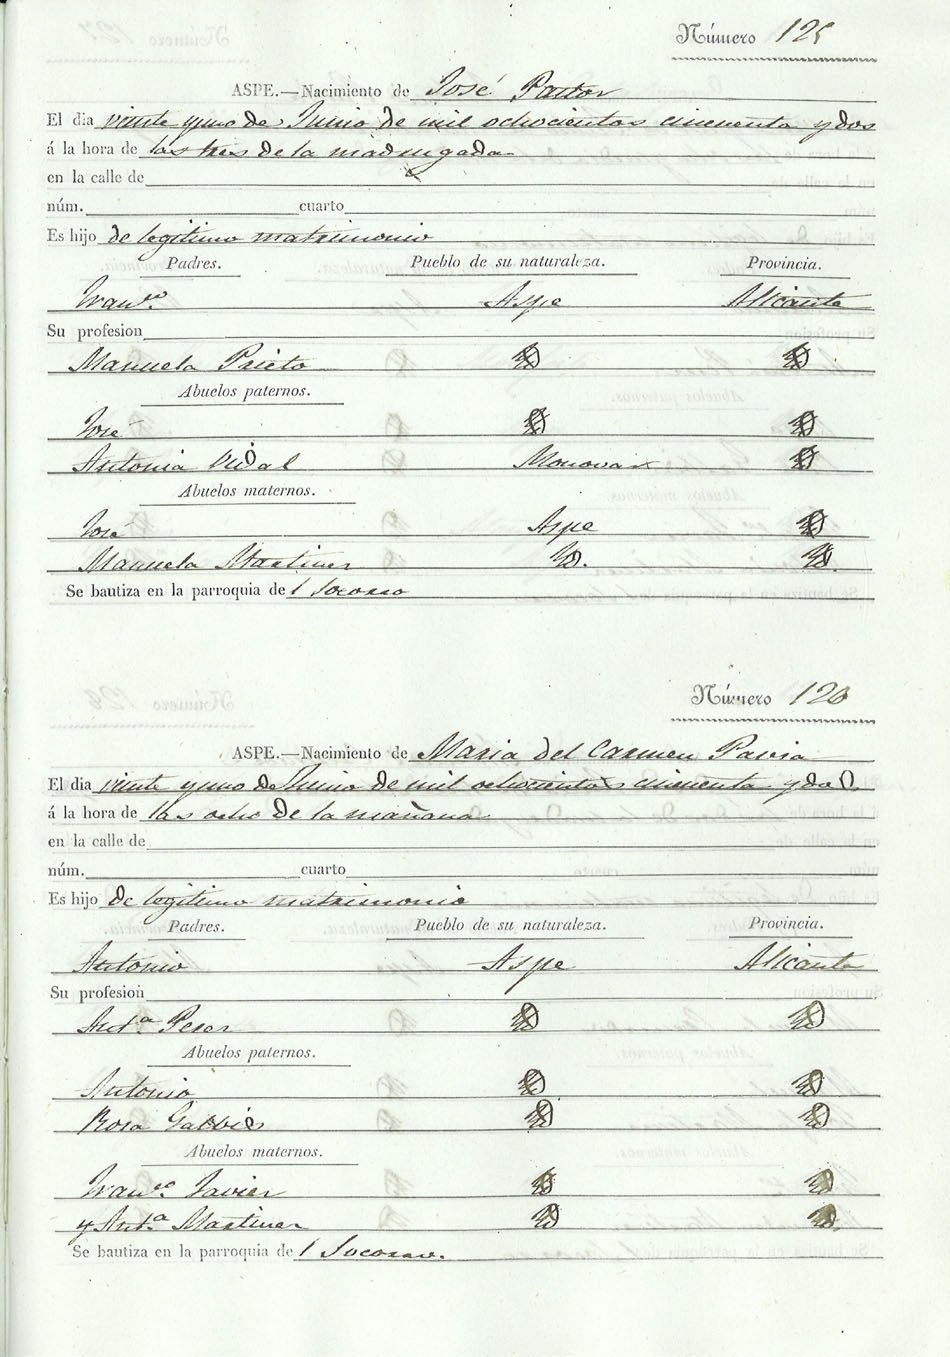 Número 125
ASPE.—Nacimiento de José Pastor
El dia veinte y uno de Junio de mil ochocientos cincuenta y dos
á la hora de las tres de la madrugada
en la calle de
núm. cuarto
Es hijo de legitimo matrimonio
Padres. Pueblo de su naturaleza. Provincia.
Franco. Aspe Alicante
Su profesion
Manuela Prieto Yd Yd
Abuelos paternos.
José Yd Yd
Antonia Vidal Monovar Yd
Abuelos maternos.
José Aspe Yd
Manuela Martinez Yd. Yd.
Se bautiza en la parroquia de l Socorro
Número 126
ASPE.—Nacimiento de Maria del Carmen Pavia
El dia veinte y uno de Junio de mil ochocientos cincuenta y dos
á la hora de las ocho de la mañana
en la calle de
núm. cuarto
Es hijo de legitimo matrimonio
Padres. Pueblo de su naturaleza. Provincia.
Antonio Aspe Alicante
Su profesion
Anta Yd Yd
Abuelos paternos.
Antonio Yd Yd
Rosa Yd Yd
Abuelos maternos.
Franco Javier Yd Yd
y Anta Martinez Yd Yd
Se bautiza en la parroquia de l Socorro.